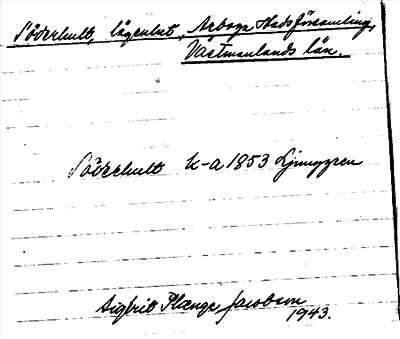 Söderhult, lägenhet, Arboga Stadsförsamling,
Västmanlands län.
Söderhult k-a 1853 Ljunggren
Sigfrid Plange Jacobson
1943.